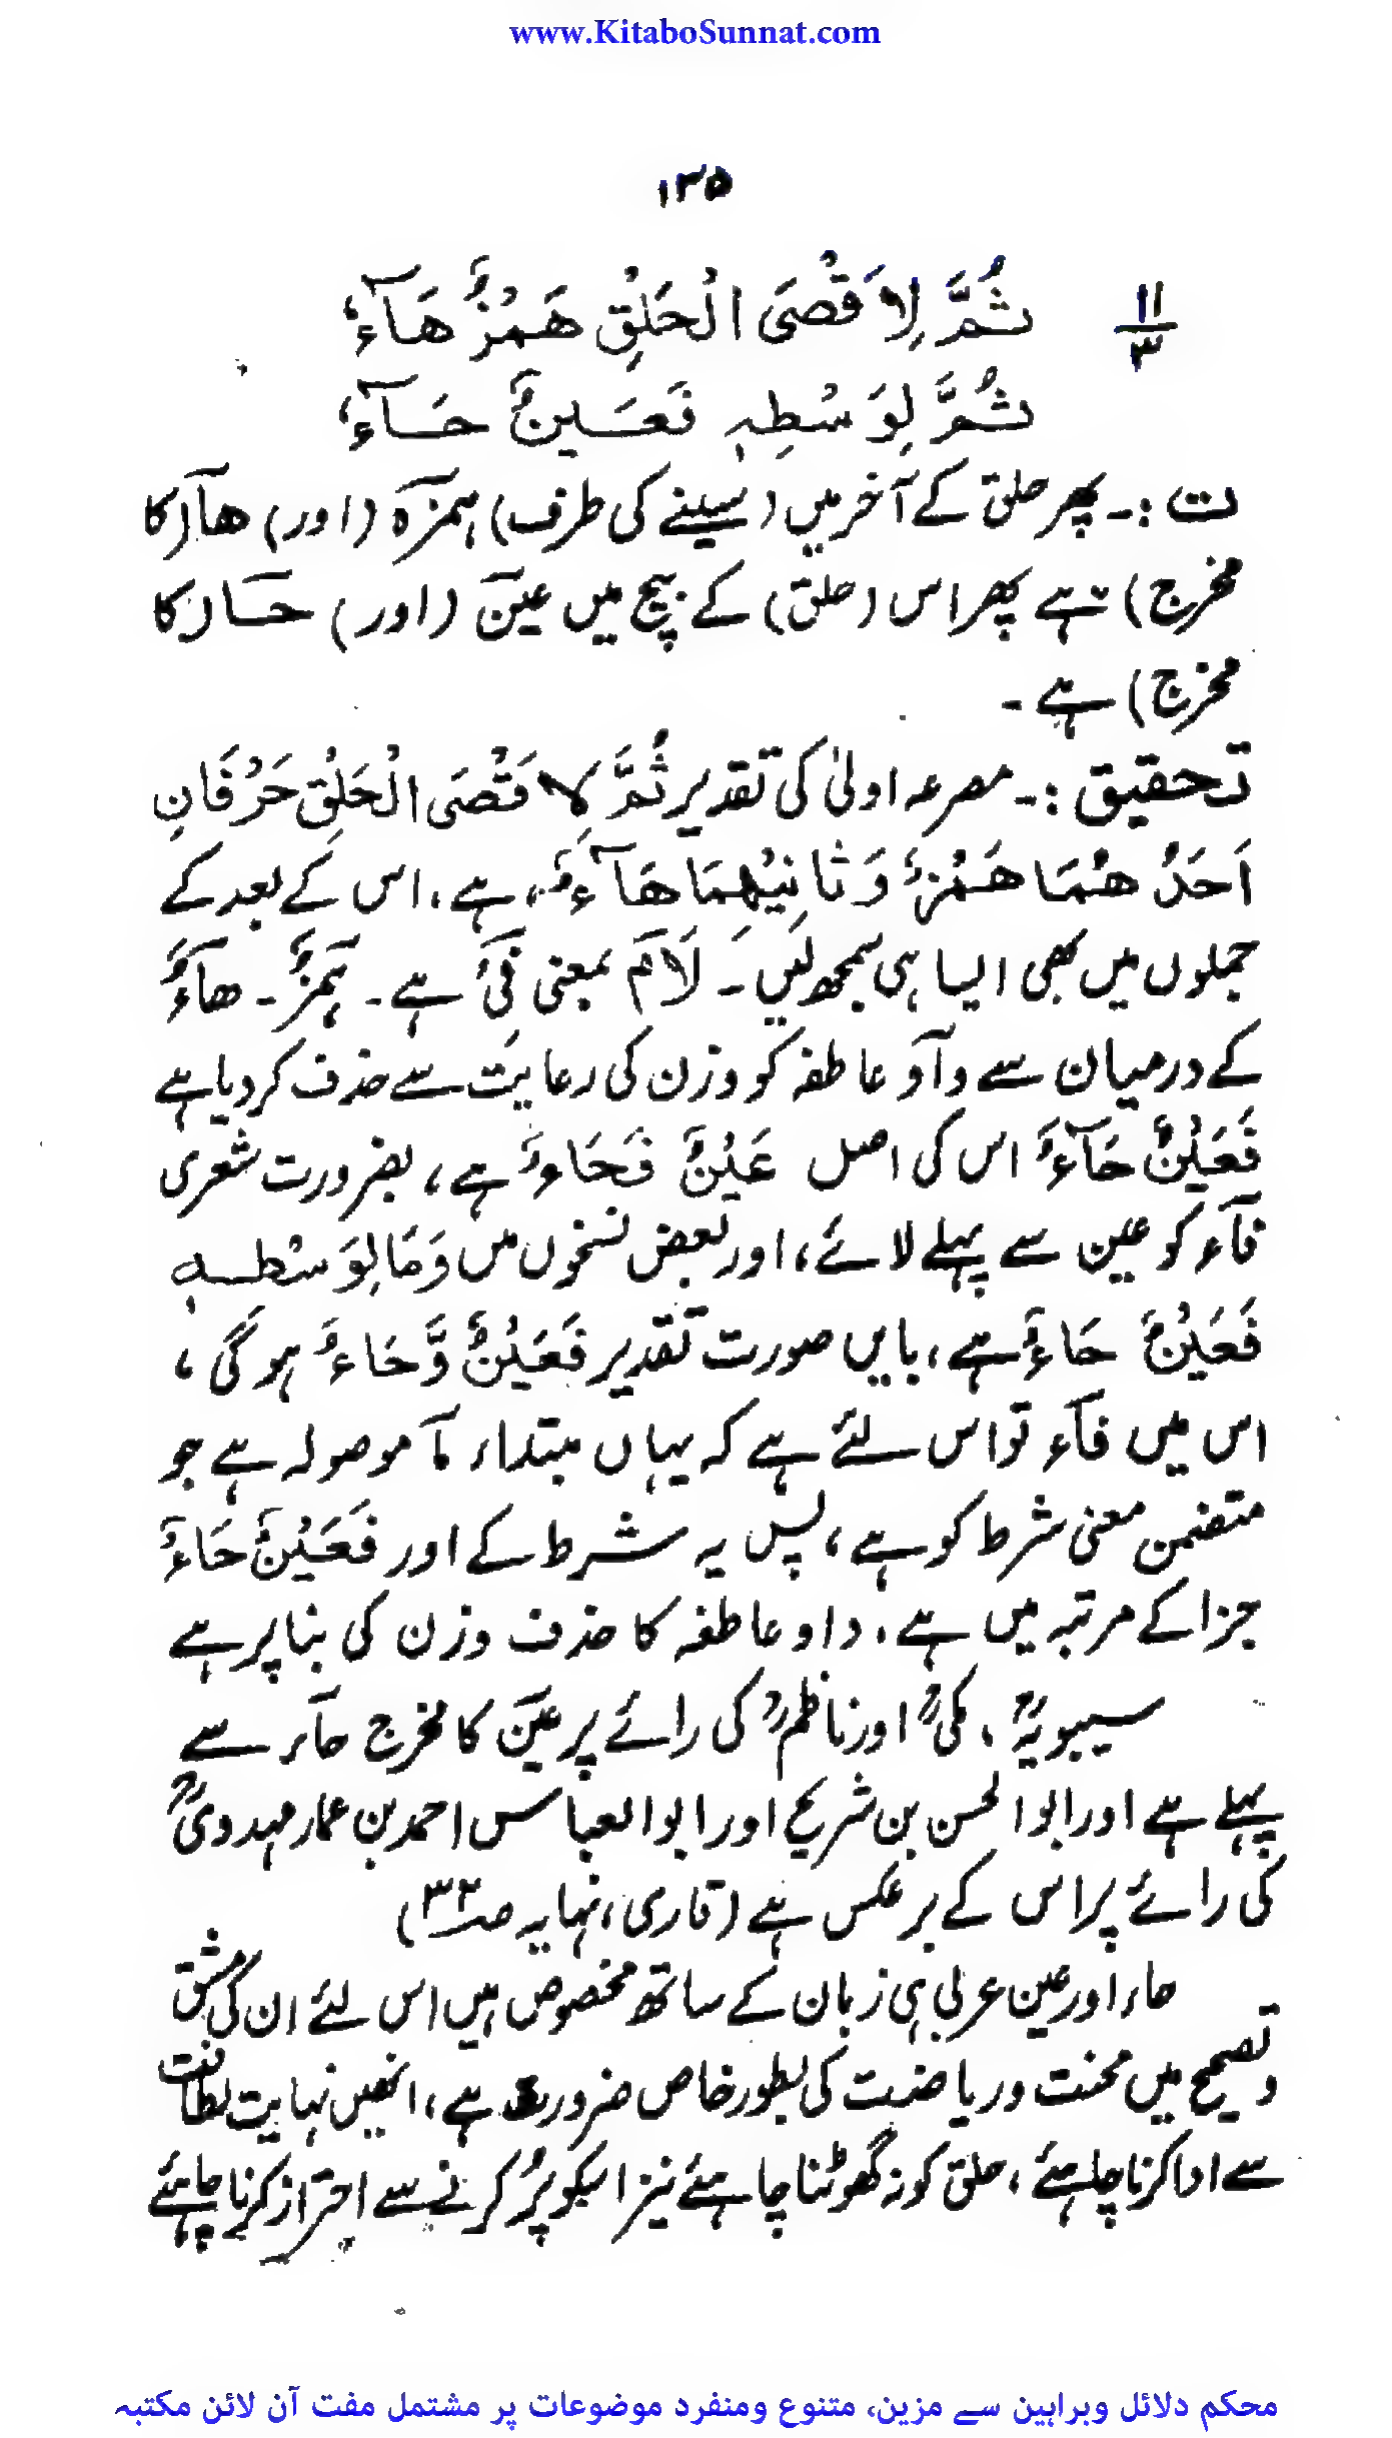 www.KitaboSunnat.com
۱۳۵
۱۱
۳
ثُمَّ لِاَقْصَی الْحَلْقِ هَمْزٌ هَآءٌ
ثُمَّ لِوَسْطِهٖ فَعَیْنٌ حَآءٌ
ت :۔ پھر حلق کے آخر میں (سینے کی طرف) ہمزہ (اور) ھآء (کا
مخرج) ہے پھر اس (حلق) کے بیچ میں عین (اور) حاء (کا
مخرج) ہے ۔
تحقیق :۔ مصرعہ اولیٰ کی تقدیر ثُمَّ لِاَقْصَی الْحَلْقِ حَرْفَانِ
اَحَدُهُمَا هَمْزٌ وَثَانِیْهِمَا هَآءٌ، ہے، اس کے بعد کے
جملوں میں بھی ایسا ہی سمجھ لیں ۔ لَام بمعنی فِیْ ہے ۔ ہَمْزٌ ۔ ھَآءٌ
کے درمیان سے وآو عاطفہ کو وزن کی رعایت سے حذف کر دیا ہے
فَعَیْنٌ حَآءٌ اس کی اصل عَیْنٌ فَحَاءٌ ہے، بضرورت شعری
فآء کو عین سے پہلے لائے، اور بعض نسخوں میں وَمَا لِوَسْطِهٖ
فَعَیْنٌ حَاءٌ ہے، بایں صورت تقدیر فَعَیْنٌ وَّحَاءٌ ہوگی ،
اس میں فآء تو اس لئے ہے کہ یہاں مبتداء مآ موصولہ ہے جو
متضمن معنی شرط کو ہے، پس یہ شرط کے اور فَعَیْنٌ حَاءٌ
جزا کے مرتبہ میں ہے، واو عاطفہ کا حذف وزن کی بنا پر ہے
سیبویہؒ، مکیؒ اور ناظمؒ کی رائے پر عین کا مخرج حاء سے
پہلے ہے اور ابو الحسن بن شریح اور ابو العباس احمد بن عمار مہدویؒ
کی رائے پر اس کے برعکس ہے (قاری، نہایہ صـ۳۲)
حاء اور عین عربی ہی زبان کے ساتھ مخصوص ہیں اس لئے ان کی مشق
و تصحیح میں محنت و ریاضت کی بطور خاص ضرورت ہے، انھیں نہایت لطافت
سے ادا کرنا چاہئے، حلق کو نہ گھوٹنا چاہئے نیز اسکو پُر کرنے سے احتراز کرنا چاہئے
محکم دلائل وبراہین سے مزین، متنوع ومنفرد موضوعات پر مشتمل مفت آن لائن مکتبہ